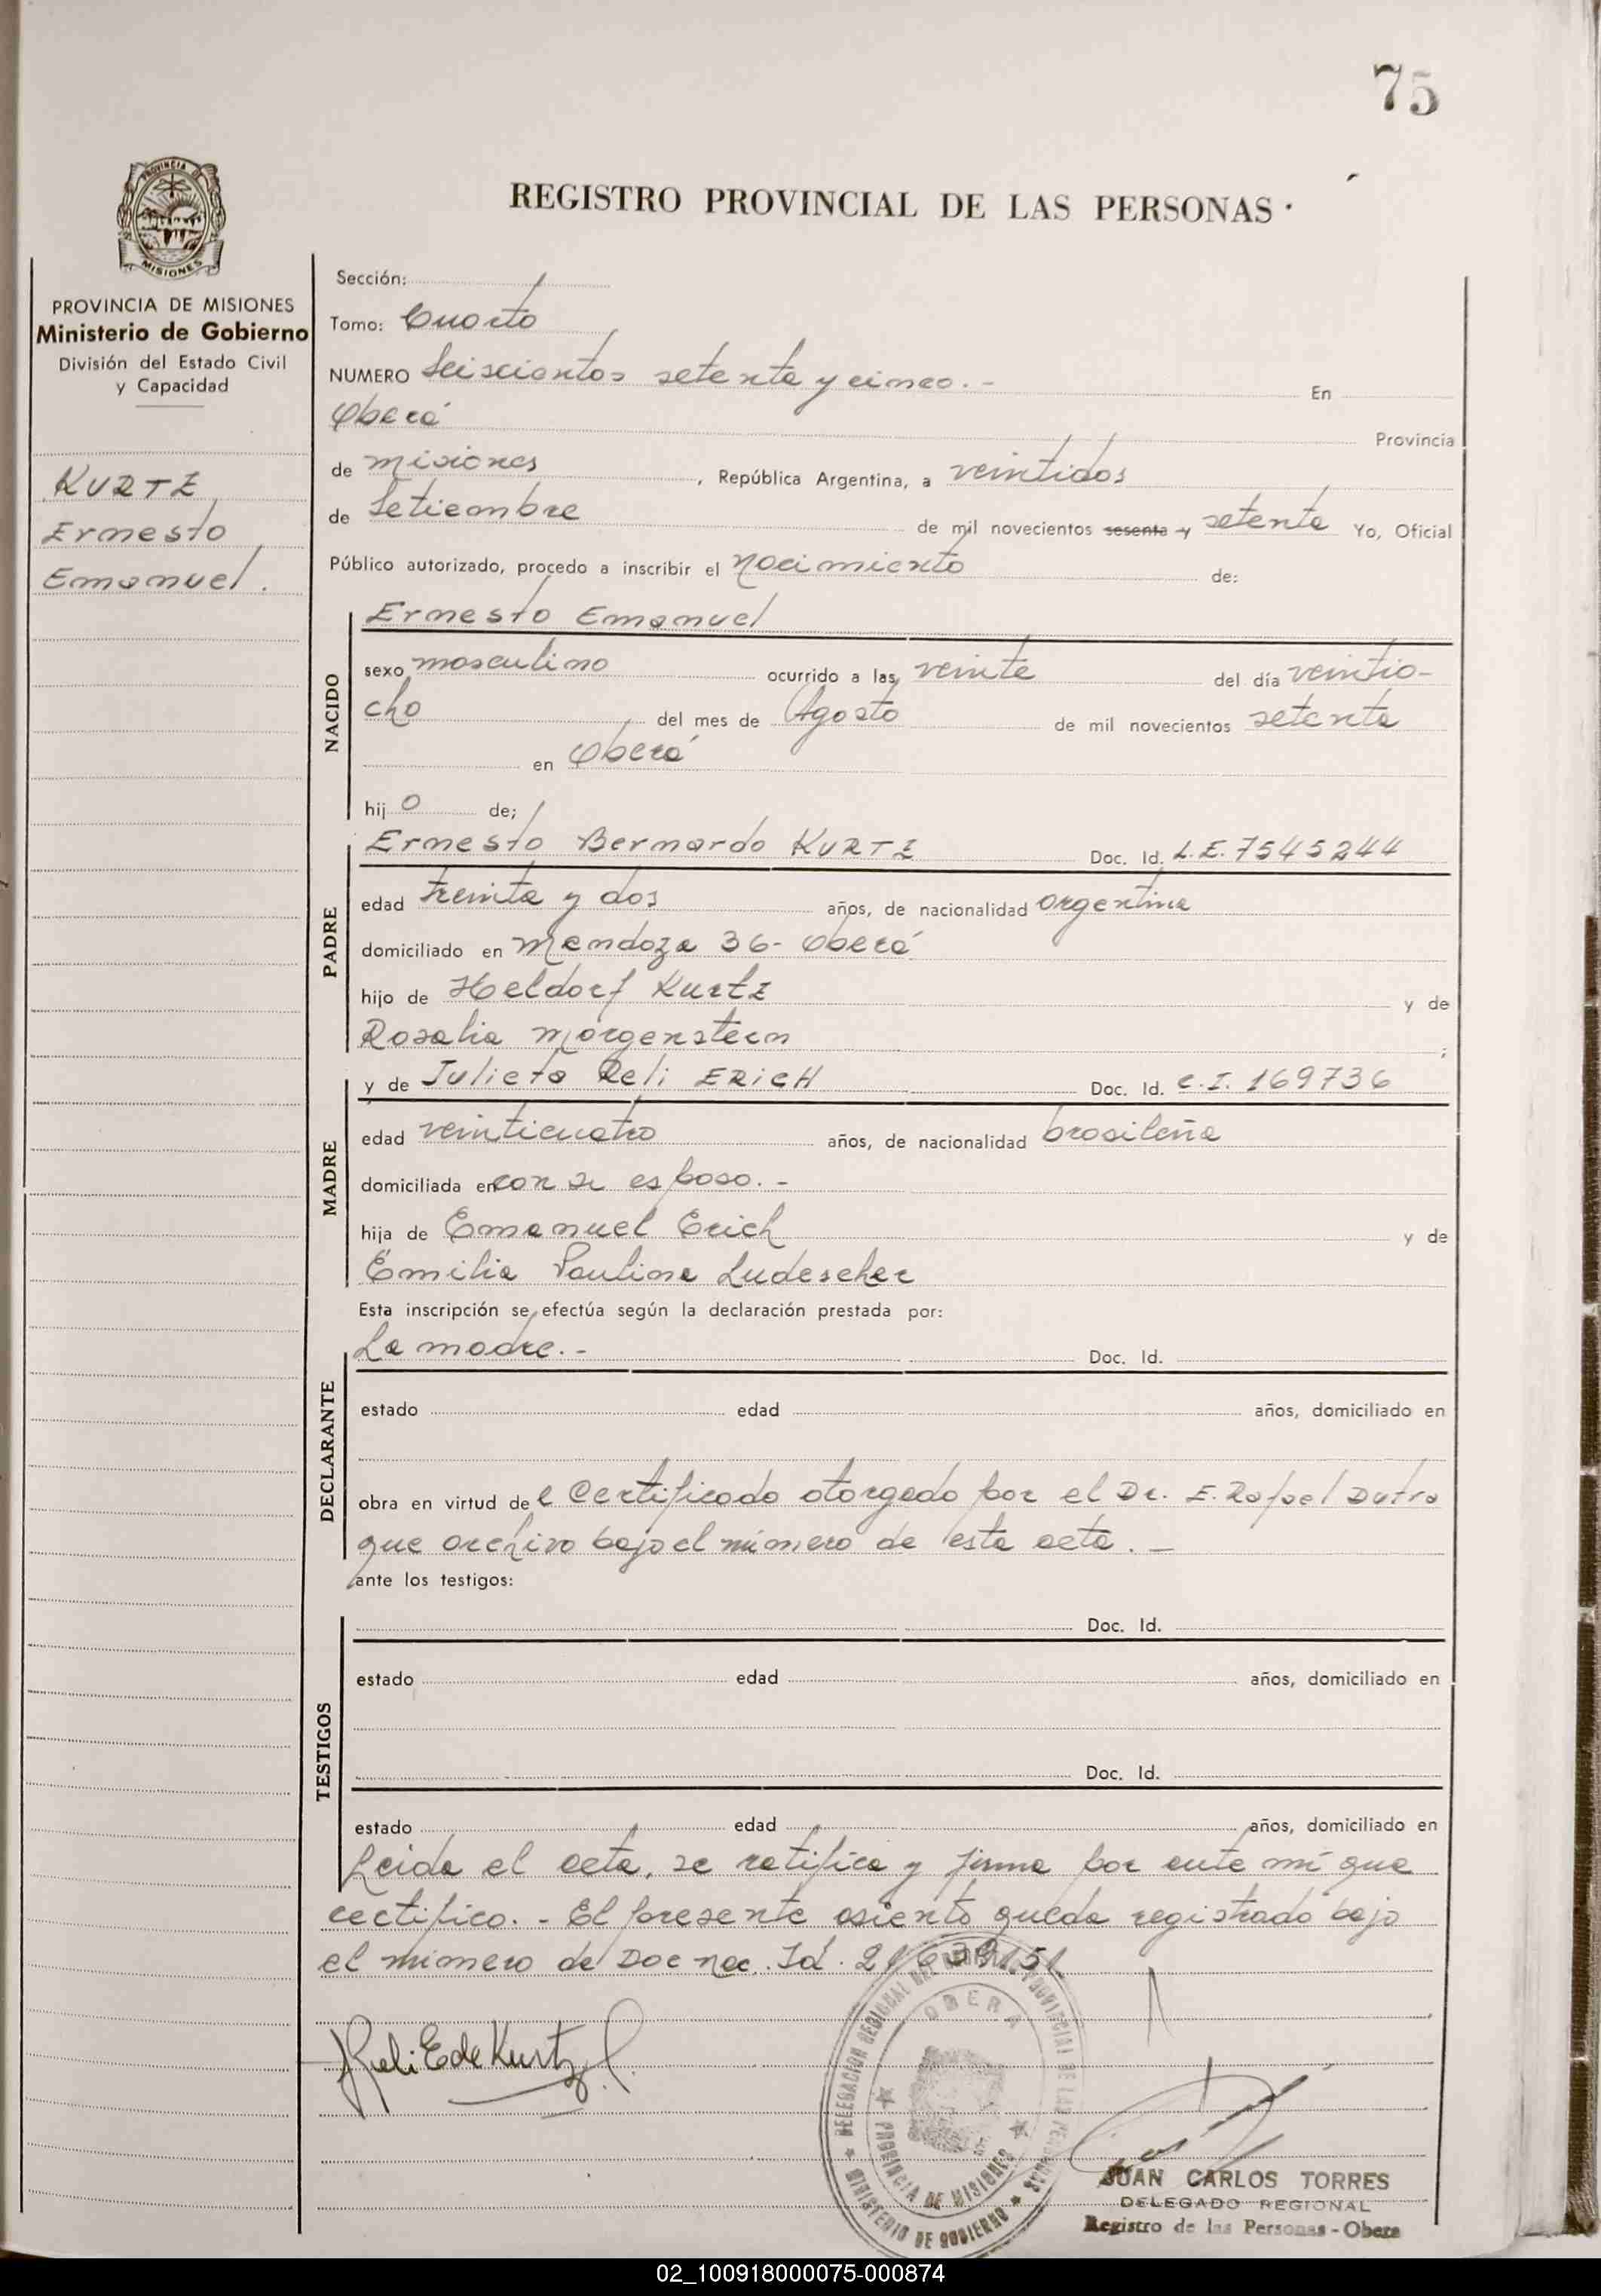 75
REGISTRO PROVINCIAL DE LAS PERSONAS
PROVINCIA
MISIONES
PROVINCIA DE MISIONES
Ministerio de Gobierno
División del Estado Civil
y Capacidad
KURTZ
Ernesto
Emanuel.
Sección:
Tomo: Cuarto
NUMERO Seiscientos setenta y cinco.- En
Oberá Provincia
de misiones, República Argentina, a veintidos
de Setiembre de mil novecientos sesenta y setenta Yo, Oficial
Público autorizado, procedo a inscribir el nacimiento de:
NACIDO
Ernesto Emanuel
sexo masculino ocurrido a las veinte del día veintio-
cho del mes de Agosto de mil novecientos setenta
en Oberá
hijo de;
PADRE
Ernesto Bernardo KURTZ Doc. Id. L.E. 7545244
edad treinta y dos años, de nacionalidad argentina
domiciliado en Mendoza 36- Oberá
hijo de Heldorf Kurtz y de
Rosalia Morgenstern ;
MADRE
y de Julieta Reli ERICH Doc. Id. C.I. 169736
edad veinticuatro años, de nacionalidad brasileña
domiciliada en con su esposo.-
hija de Emanuel Erich y de
Emilia Paulina Ludescher
Esta inscripción se efectúa según la declaración prestada por:
DECLARANTE
La madre.- Doc. Id.
estado edad años, domiciliado en
obra en virtud del Certificado otorgado por el Dr. E. Rafael Dutra
que archivo bajo el número de esta acta.-
ante los testigos:
TESTIGOS
Doc. Id.
estado edad años, domiciliado en
Doc. Id.
estado edad años, domiciliado en
Leida el acta, se ratifica y firma por ante mí que
certifico.- El presente asiento queda registrado bajo
el número de Doc nac. Id. 21639151
Reli E de Kurtz
DELEGACION REGIONAL DEL PROVINCIAL DE LAS PERSONAS
OBERA
PROVINCIA DE MISIONES
MINISTERIO DE GOBIERNO
JUAN CARLOS TORRES
DELEGADO REGIONAL
Registro de las Personas - Obera
02_100918000075-000874